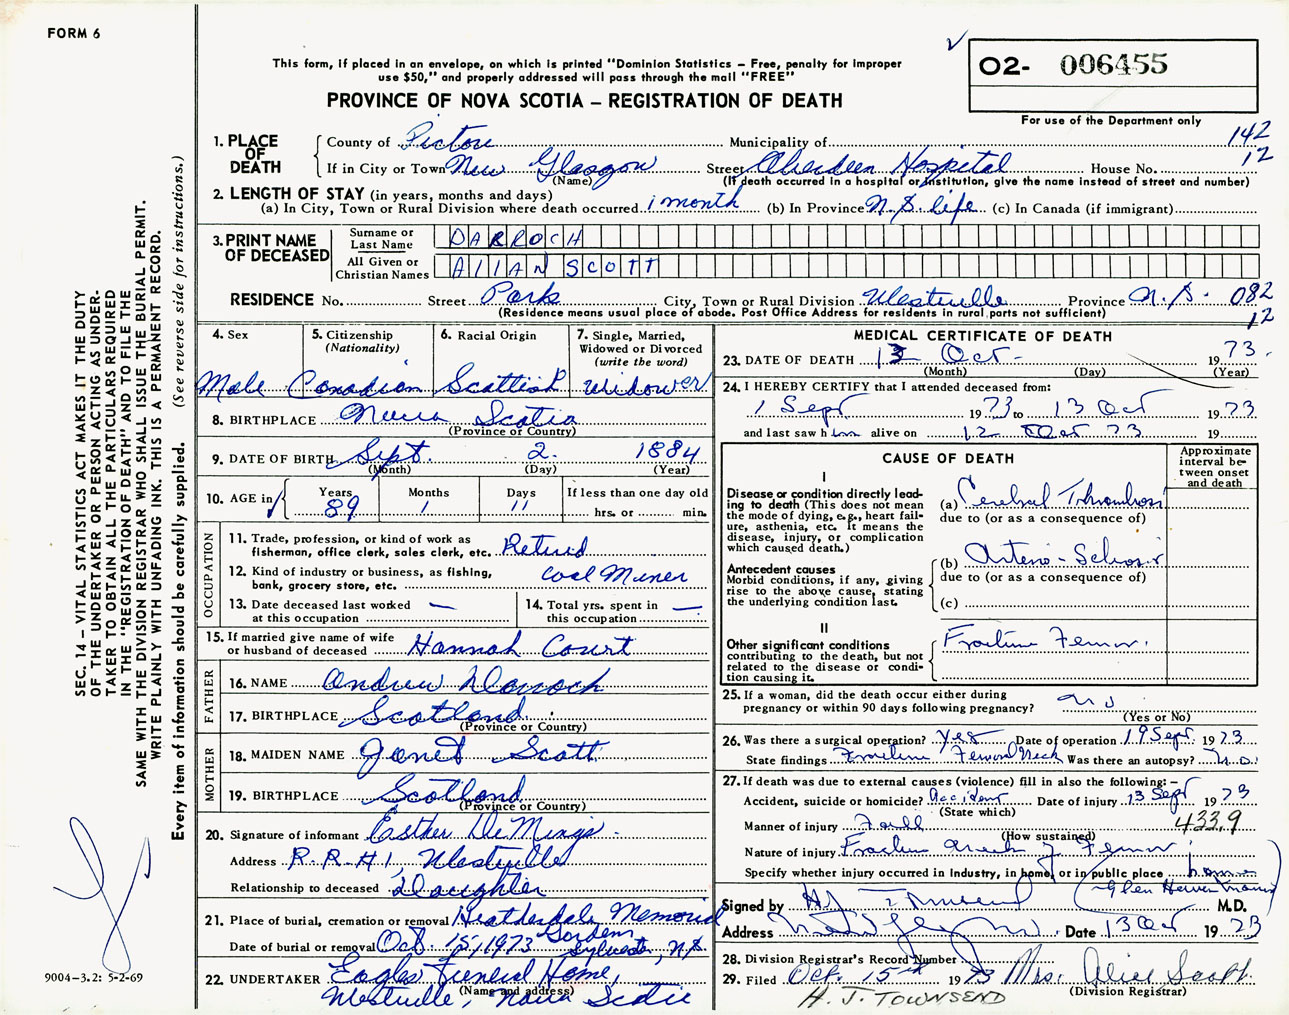 FORM 6
This form, if placed in an envelope, on which is printed "Dominion Statistics – Free, penalty for improper
use $50," and properly addressed will pass through the mail "FREE"
O2- 006455
PROVINCE OF NOVA SCOTIA – REGISTRATION OF DEATH
For use of the Department only
142
12
1. PLACE OF DEATH
County of Pictou Municipality of
If in City or Town New Glasgow Street Aberdeen Hospital House No.
(Name) (If death occurred in a hospital or institution, give the name instead of street and number)
2. LENGTH OF STAY (in years, months and days)
(a) In City, Town or Rural Division where death occurred 1 month (b) In Province N.S. life (c) In Canada (if immigrant)
3. PRINT NAME OF DECEASED
Surname or Last Name DARROCH
All Given or Christian Names AllAN SCOTT
RESIDENCE No. Street Park City, Town or Rural Division Westville Province N.S. 082
12
(Residence means usual place of abode. Post Office Address for residents in rural parts not sufficient)
4. Sex Male
5. Citizenship (Nationality) Canadian
6. Racial Origin Scottish
7. Single, Married, Widowed or Divorced (write the word) Widower
8. BIRTHPLACE Nova Scotia
(Province or Country)
9. DATE OF BIRTH Sept. 2 1884
(Month) (Day) (Year)
10. AGE in Years 89 Months 1 Days 11 If less than one day old hrs. or min.
OCCUPATION
11. Trade, profession, or kind of work as fisherman, office clerk, sales clerk, etc. Retired
12. Kind of industry or business, as fishing, bank, grocery store, etc. Coal Miner
13. Date deceased last worked at this occupation —
14. Total yrs. spent in this occupation —
15. If married give name of wife or husband of deceased Hannah Court
FATHER
16. NAME Andrew Darroch
17. BIRTHPLACE Scotland
(Province or Country)
MOTHER
18. MAIDEN NAME Janet Scott
19. BIRTHPLACE Scotland
(Province or Country)
20. Signature of informant Easther DeMings
Address R.R.#1, Westville
Relationship to deceased Daughter
21. Place of burial, cremation or removal Heatherdale Memorial Gardens
Date of burial or removal Oct. 15, 1973 Sylvester, N.S.
22. UNDERTAKER Eagles Funeral Home,
(Name and address)
Westville, Nova Scotia
MEDICAL CERTIFICATE OF DEATH
23. DATE OF DEATH 13 Oct 1973
(Month) (Day) (Year)
24. I HEREBY CERTIFY that I attended deceased from:
1 Sept 1973 to 13 Oct 1973
and last saw him alive on 12 Oct 73 19
CAUSE OF DEATH
Approximate interval between onset and death
I
Disease or condition directly leading to death (This does not mean the mode of dying, e.g., heart failure, asthenia, etc. It means the disease, injury, or complication which caused death.)
(a) Cerebral Thrombosis
due to (or as a consequence of)
Antecedent causes
Morbid conditions, if any, giving rise to the above cause, stating the underlying condition last.
(b)
due to (or as a consequence of)
(c)
II
Other significant conditions contributing to the death, but not related to the disease or condition causing it.
Fracture Femur.
25. If a woman, did the death occur either during pregnancy or within 90 days following pregnancy?
(Yes or No)
26. Was there a surgical operation? Yes Date of operation 19 Sept 1973
State findings Fracture Femoral Neck Was there an autopsy? No
27. If death was due to external causes (violence) fill in also the following: –
Accident, suicide or homicide? Accident Date of injury 13 Sept 1973
(State which)
Manner of injury Fall 433.9
(How sustained)
Nature of injury Fracture Neck of Femur
Specify whether injury occurred in Industry, in home, or in public place home
Glen Haven Manor
Signed by M.D.
Address Date 13 Oct 1973
28. Division Registrar's Record Number
29. Filed Oct. 15th 1973 Mrs. Alice Scott
(Division Registrar)
H. J. TOWNSEND
SEC. 14 – VITAL STATISTICS ACT MAKES IT THE DUTY
OF THE UNDERTAKER OR PERSON ACTING AS UNDER-
TAKER TO OBTAIN ALL THE PARTICULARS REQUIRED
IN THE "REGISTRATION OF DEATH" AND TO FILE THE
SAME WITH THE DIVISION REGISTRAR WHO SHALL ISSUE THE BURIAL PERMIT.
WRITE PLAINLY WITH UNFADING INK. THIS IS A PERMANENT RECORD.
Every item of information should be carefully supplied. (See reverse side for instructions.)
9004–3.2: 5-2-69